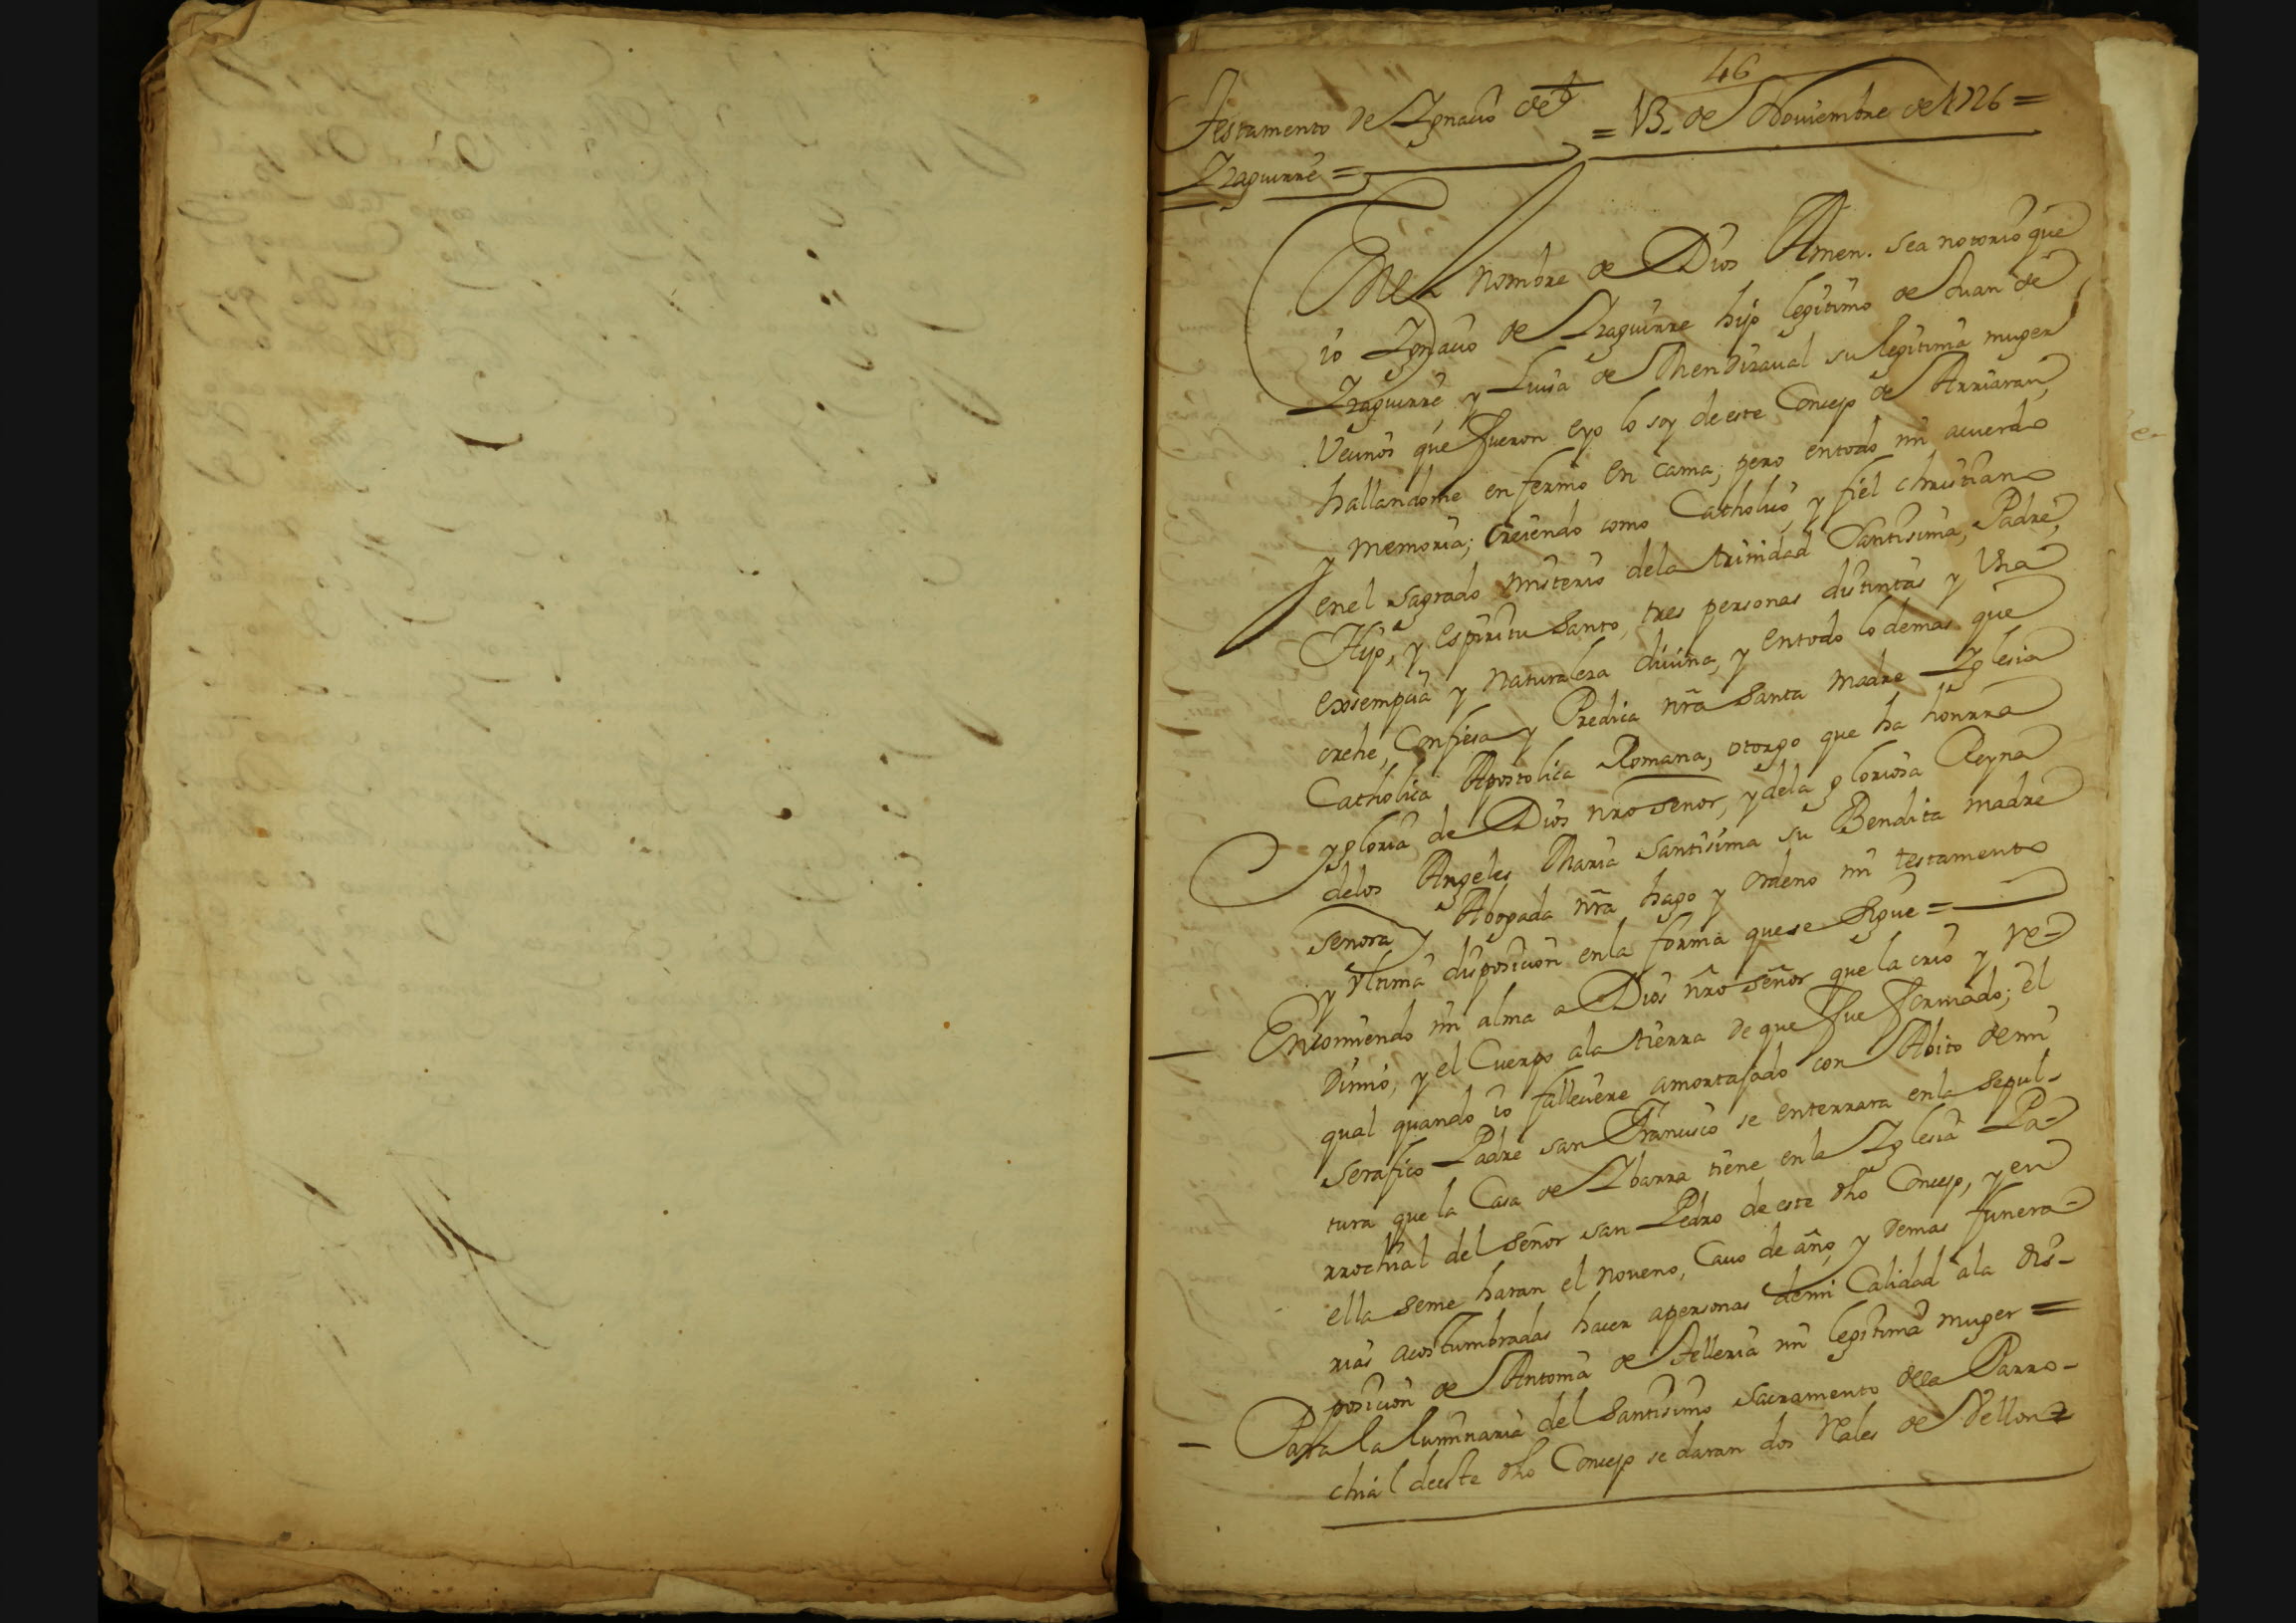 46
Testamento de Ygnacio de
Yzaguirre =
= 13 de Noviembre de 1726 =
En el nombre de Dios Amen. sea notorio que
io Ygnacio de Yzaguirre hijo legitimo de Juan de
Yzaguirre y Luisa de Mendizaual su legitima muger
Vecinos que fueron eyo lo soy de este Concejo de Arriaran,
hallandome enfermo en cama; pero entodo mi acuerdo
y memoria; creiendo como Catholico, y fiel christiano
enel sagrado misterio dela trinidad Santisima, Padre,
Hijo, y espiritu Santo, tres personas distintas y Vna
exsempcia y naturaleza diuina, y entodo lo demas que
crehe, Confiesa y Predica nr̃a Santa madre Yglesia
Catholica Apostolica Romana, otorgo que ha honrra
y gloria de Dios nro señor, y dela gloriosa Reyna
delos Angeles Maria Santisima su Bendita madre
señora y Abogada nr̃a hago y ordeno mi testamento
y vltima disposicion enla forma que se sigue =
Encomiendo mi alma a Dios nr̃o señor que la crio y re-
dimio, y el Cuerpo ala tierra de que fue formado; el
qual quando io falleciere amortajado con Abito de mi
serafico Padre san Francisco se enterrara enla sepul-
tura que la Casa de Ybarra tiene en la Yglesia Pa-
rrochial del señor san Pedro de este dho Concejo, y en
ella seme haran el noueno, Cauo de año, y demas funera-
rias acostumbradas hacer apersonas demi Calidad ala dis-
posicion de Antonia de Telleria mi legitima muger =
Para la luminaria del Santisimo sacramento dela Parro-
chial deeste dho Concejo se daran dos Rales de Vellon =